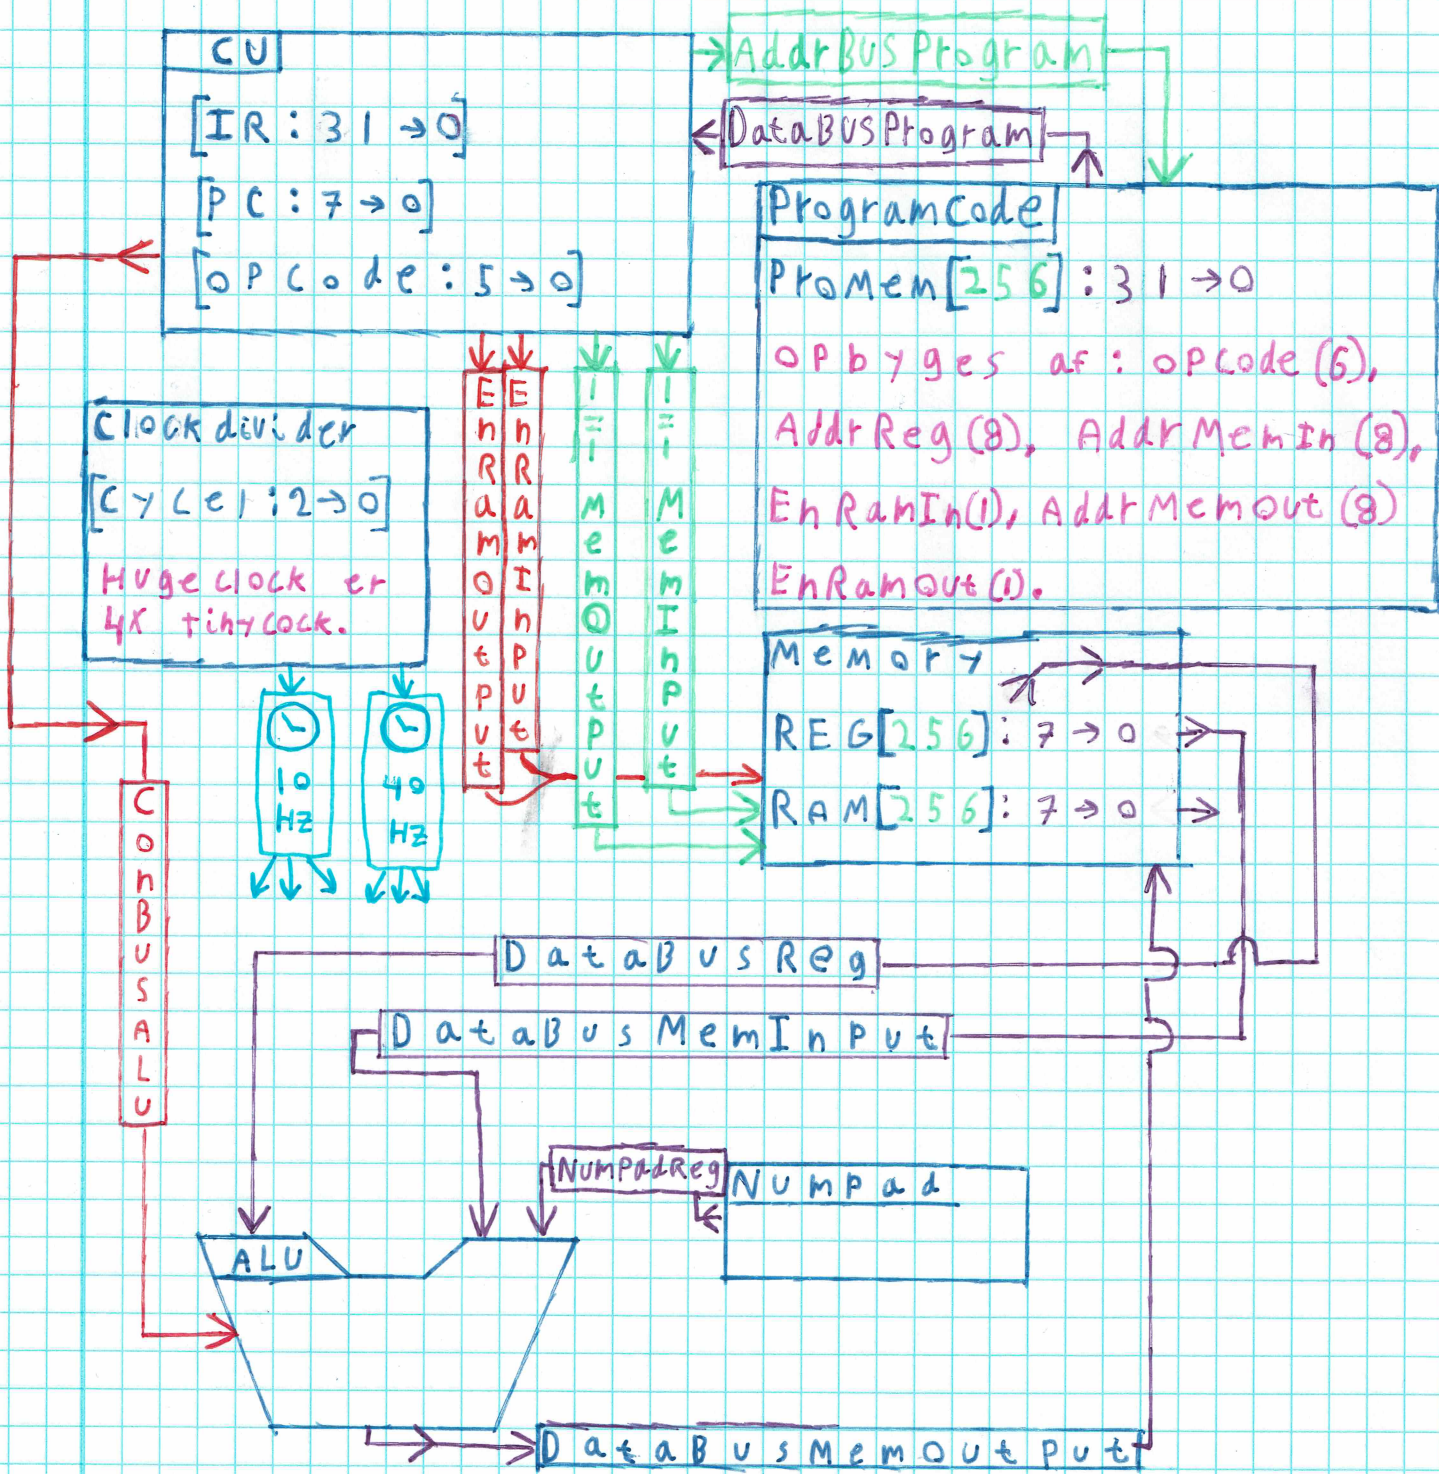 CU
[IR:31→0]
[PC:7→0]
[OPCode:5→0]
AddrBUSProgram
DataBUSProgram
ProgramCode
ProMem[256]:31→0
OPbyges af: OPCode(6),
AddrReg(8), AddrMemIn(8),
EnRamIn(1), AddrMemOut(8)
EnRamOut(1).
Clockdivider
[Cycel:2→0]
Hugeclock er
4X tinycock.
10
HZ
40
HZ
EnRamOutput
EnRamInput
MemOutput
MemInput
Memory
REG[256]:7→0
RAM[256]:7→0
ConBusALU
DataBusReg
DataBusMemInput
NumPadReg
Numpad
ALU
DataBusMemOutput